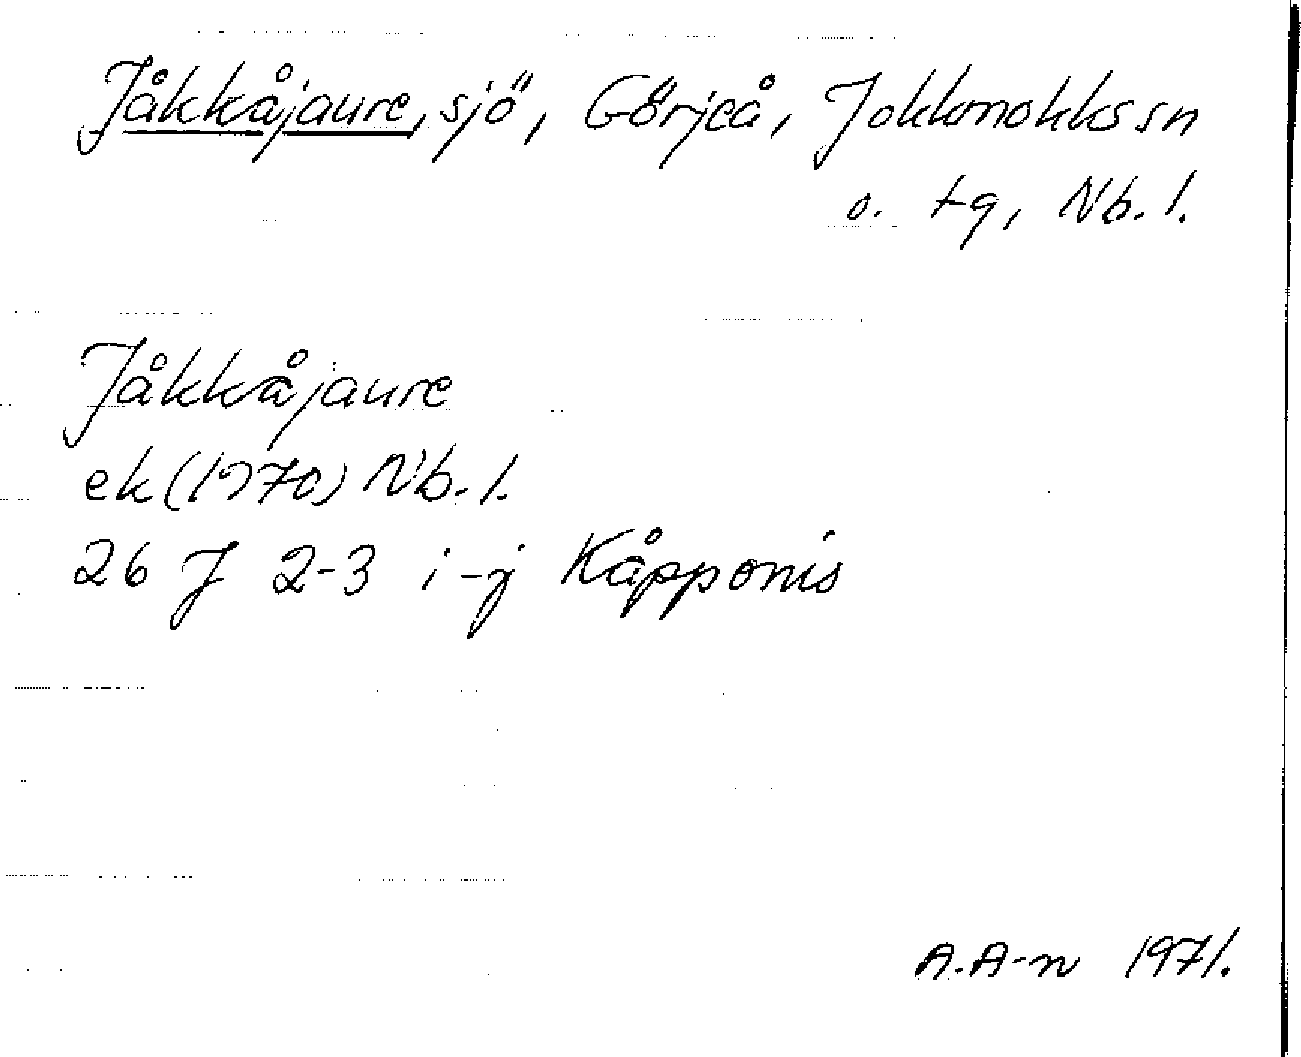 Jåkkåjaure, sjö, Görjeå, Jokkmokks sn
o. tg, Nb. l.
Jåkkåjaure
ek (1970) Nb. l.
26 J 2-3 i-j Kåpponis
A. A-n 1971.